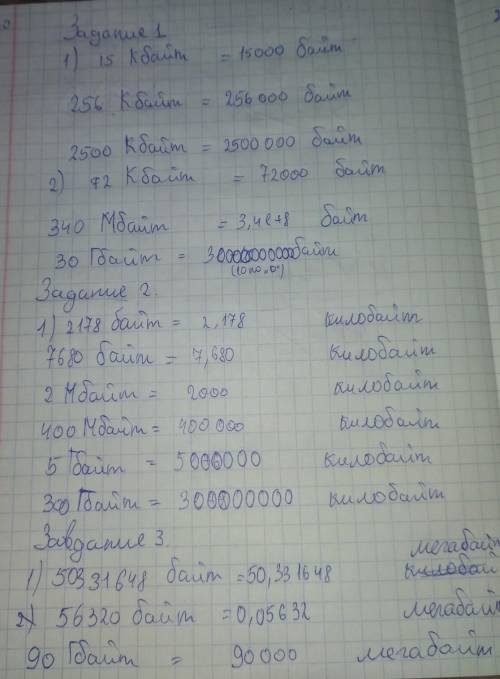 Задание 1
1) 15 Кбайт = 15000 байт
256 Кбайт = 256000 байт
2500 Кбайт = 2500000 байт
2) 72 Кбайт = 72000 байт
340 Мбайт = 3,4e+8 байт
30 Гбайт = 30000000000 байт
(10 по „0“)
Задание 2.
1) 2178 байт = 2,178 килобайт
7680 байт = 7,680 килобайт
2 Мбайт = 2000 килобайт
400 Мбайт = 400 000 килобайт
5 Гбайт = 5000000 килобайт
300 Гбайт = 300000000 килобайт
Завдание 3.
мегабайт
1) 50331648 байт = 50,331648 килобай
2) 56320 байт = 0,05632 мегабай
90 Гбайт = 90000 мегабайт